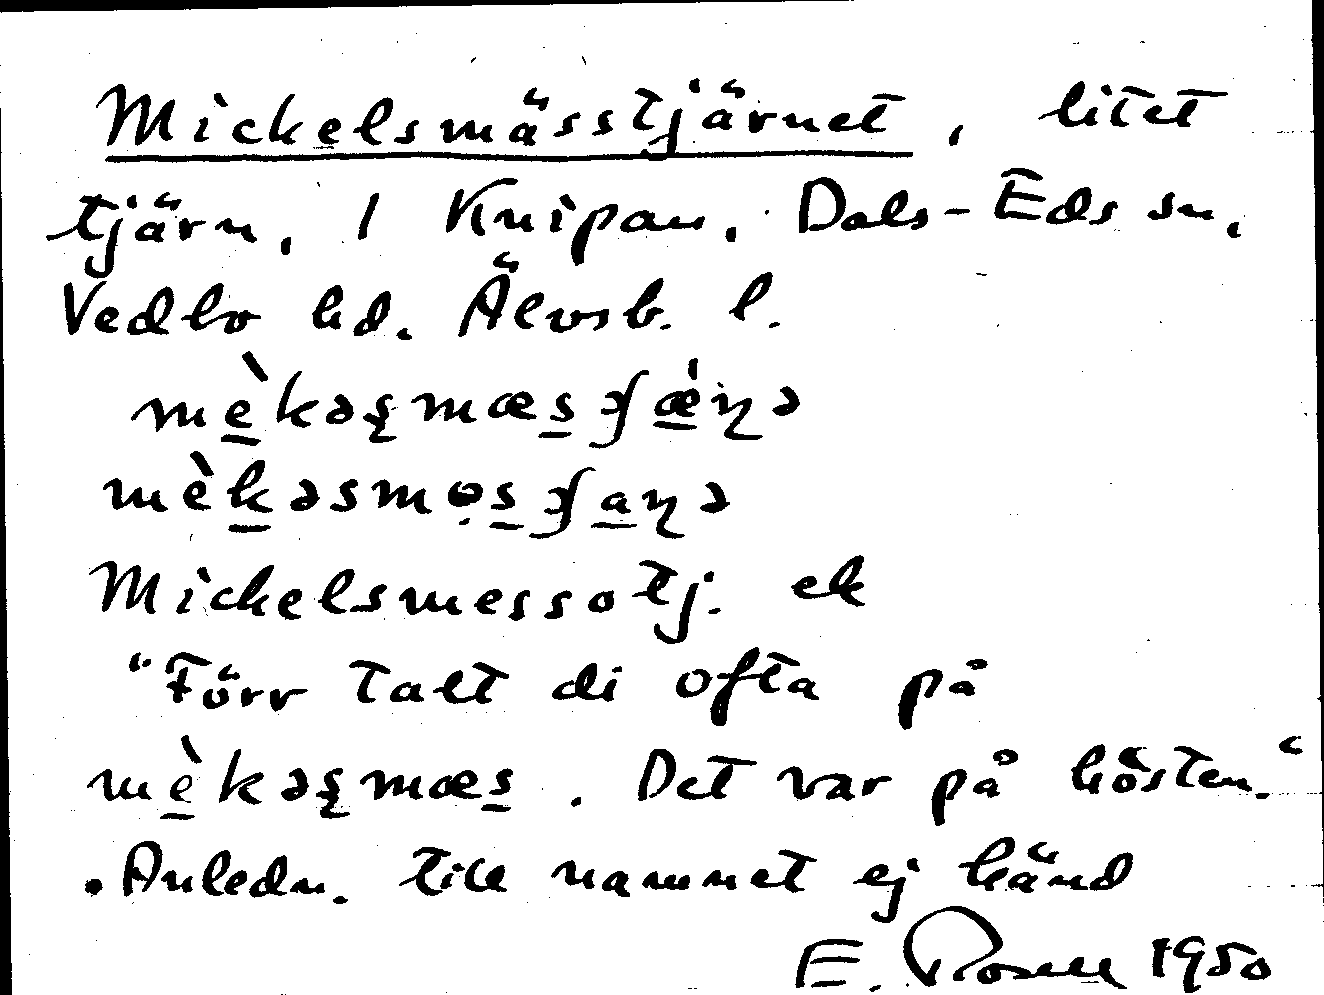 Mickelsmässtjärnet, litet
tjärn, 1 Knipan, Dals-Eds sn,
Vedbo hd. Älvsb. l.
mèkəsmæsʃæ̀ɳə
mèkəsmosʃaɳə
Mickelsmessotj. ek
"Förr talt di ofta på
mèkəsmæs. Det var på hösten."
. Anledn. till namnet ej känd
E. Rosell 1950